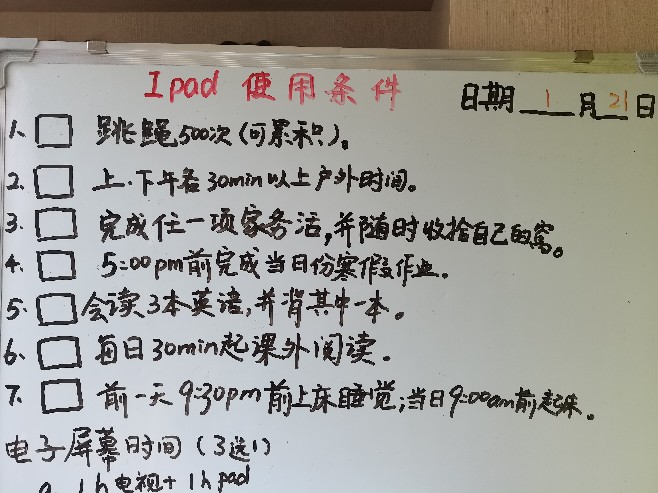 Ipad 使用条件
日期 1 月 21 日
1、 跳绳500次(可累积)。
2、 上.下午各30min以上户外时间。
3、 完成任一项家务活,并随时收拾自己的窝。
4、 5:00pm前完成当日份寒假作业。
5、 会读3本英语,并背其中一本。
6、 每日30min起课外阅读。
7、 前一天9:30pm前上床睡觉;当日9:00am前起床。
电子屏幕时间(3选1)
a. 1h电视+1hpad